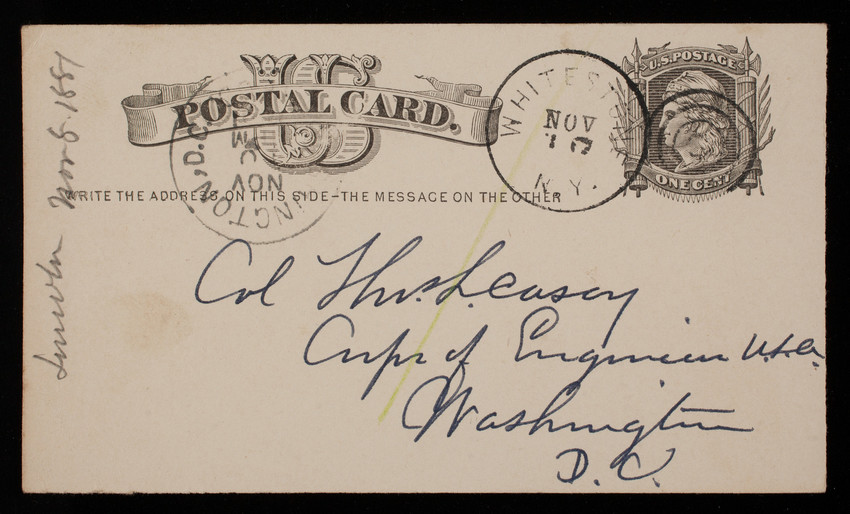 U.S. POSTAGE
POSTAL CARD.
ONE CENT
WRITE THE ADDRESS ON THIS SIDE-THE MESSAGE ON THE OTHER
WHITESTONE
NOV
N.Y.
INGTON, D.C.
NOV
Col Thos. L. Casey
Corps of Engineers U.S.A.
Washington
D. C.
Lincoln Nov 8. 1881